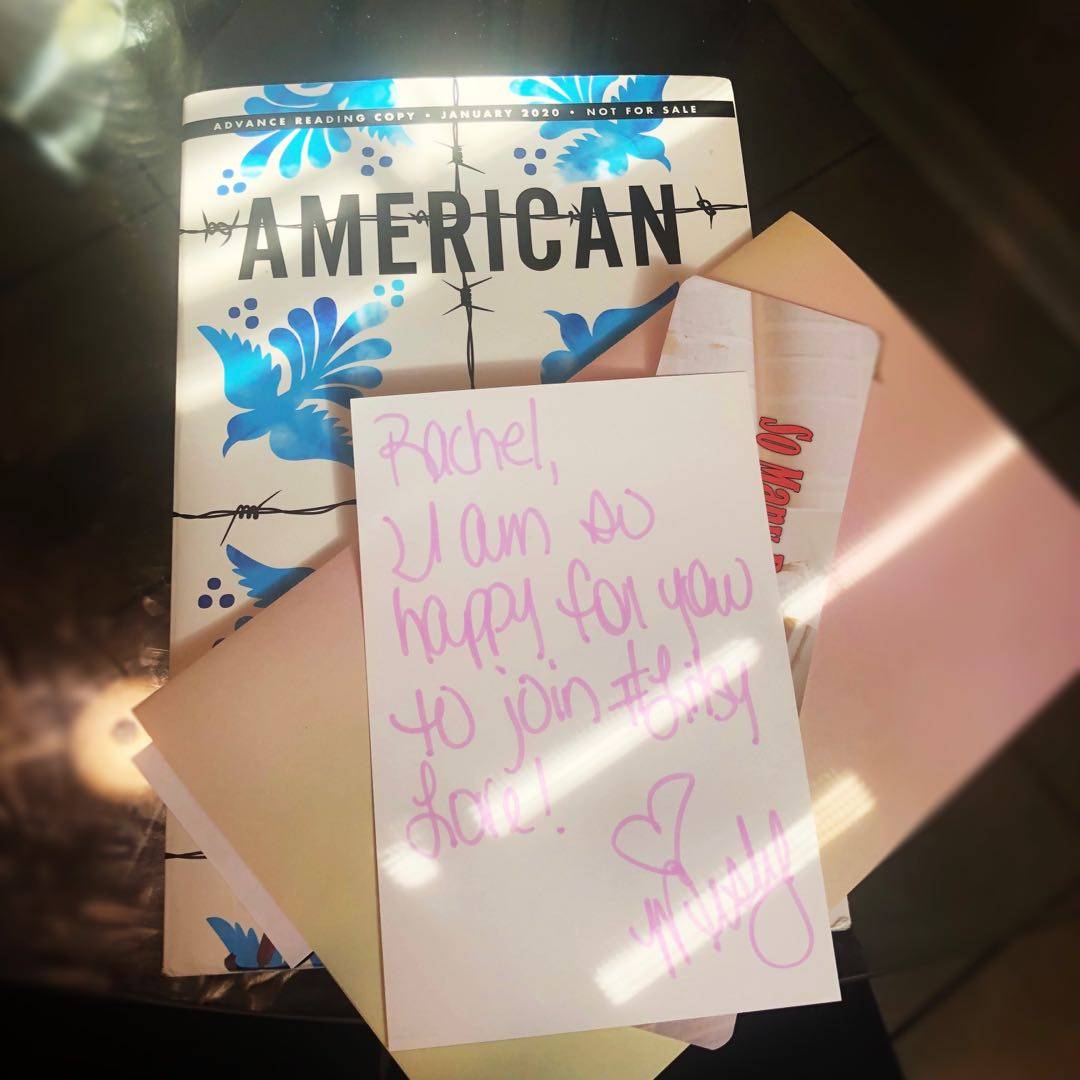 ADVANCE READING COPY • JANUARY 2020 • NOT FOR SALE
AMERICAN
So Many
Rachel,
I am so
happy for you
to join #Litsy
Love!
Misty